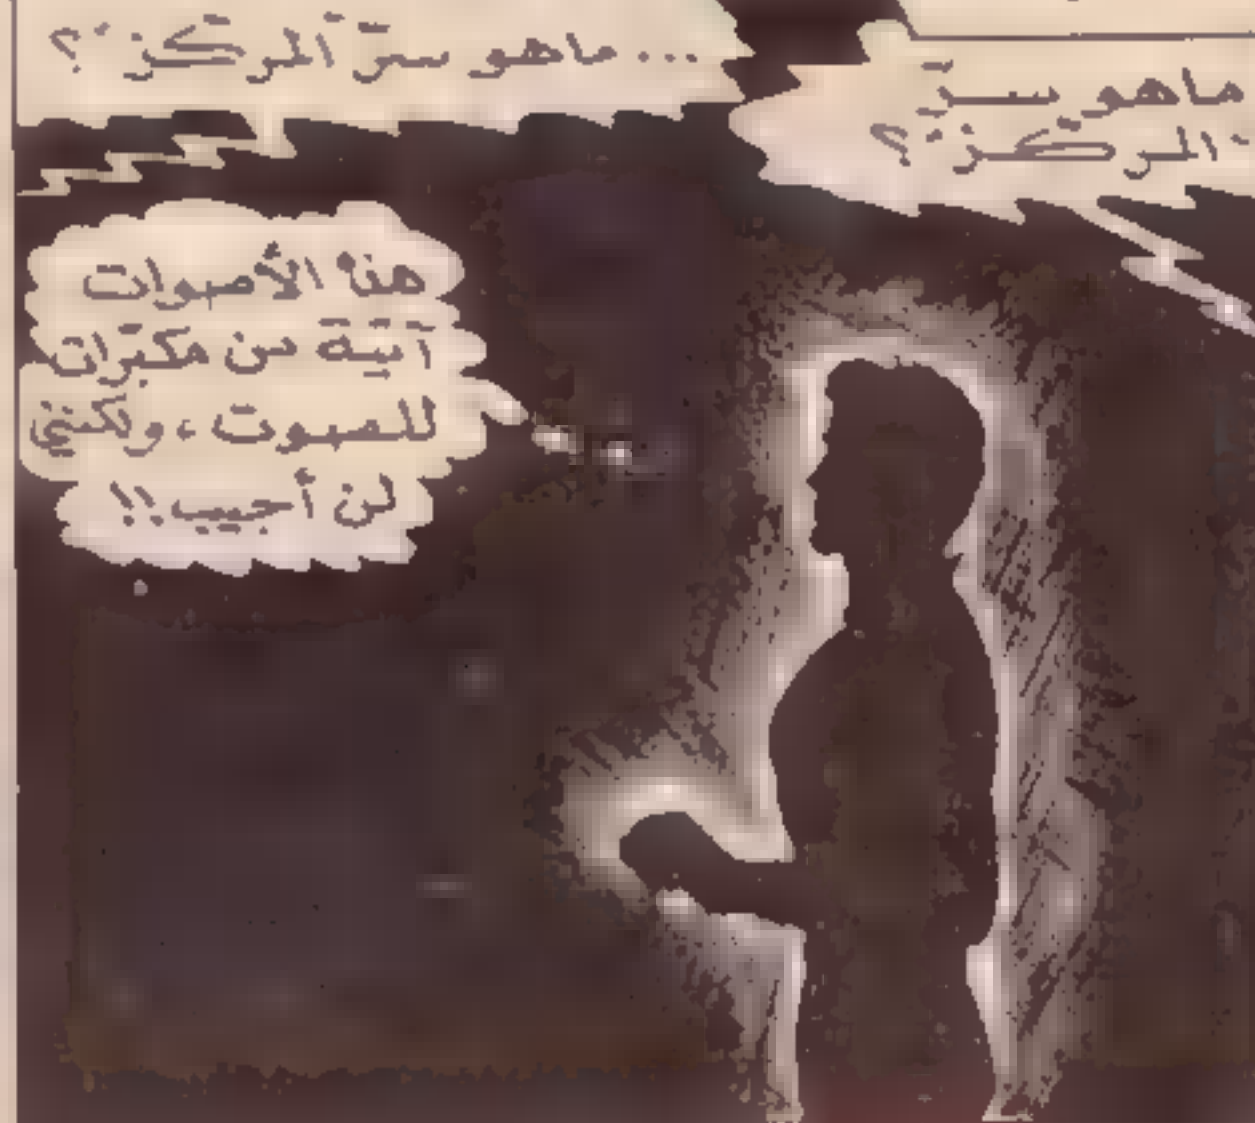 ماهو سرّ
المركز؟
... ماهو سرّ المركز؟
هذه الأصوات
آتية من مكبّرات
للصوت، ولكنني
لن أجيب!!